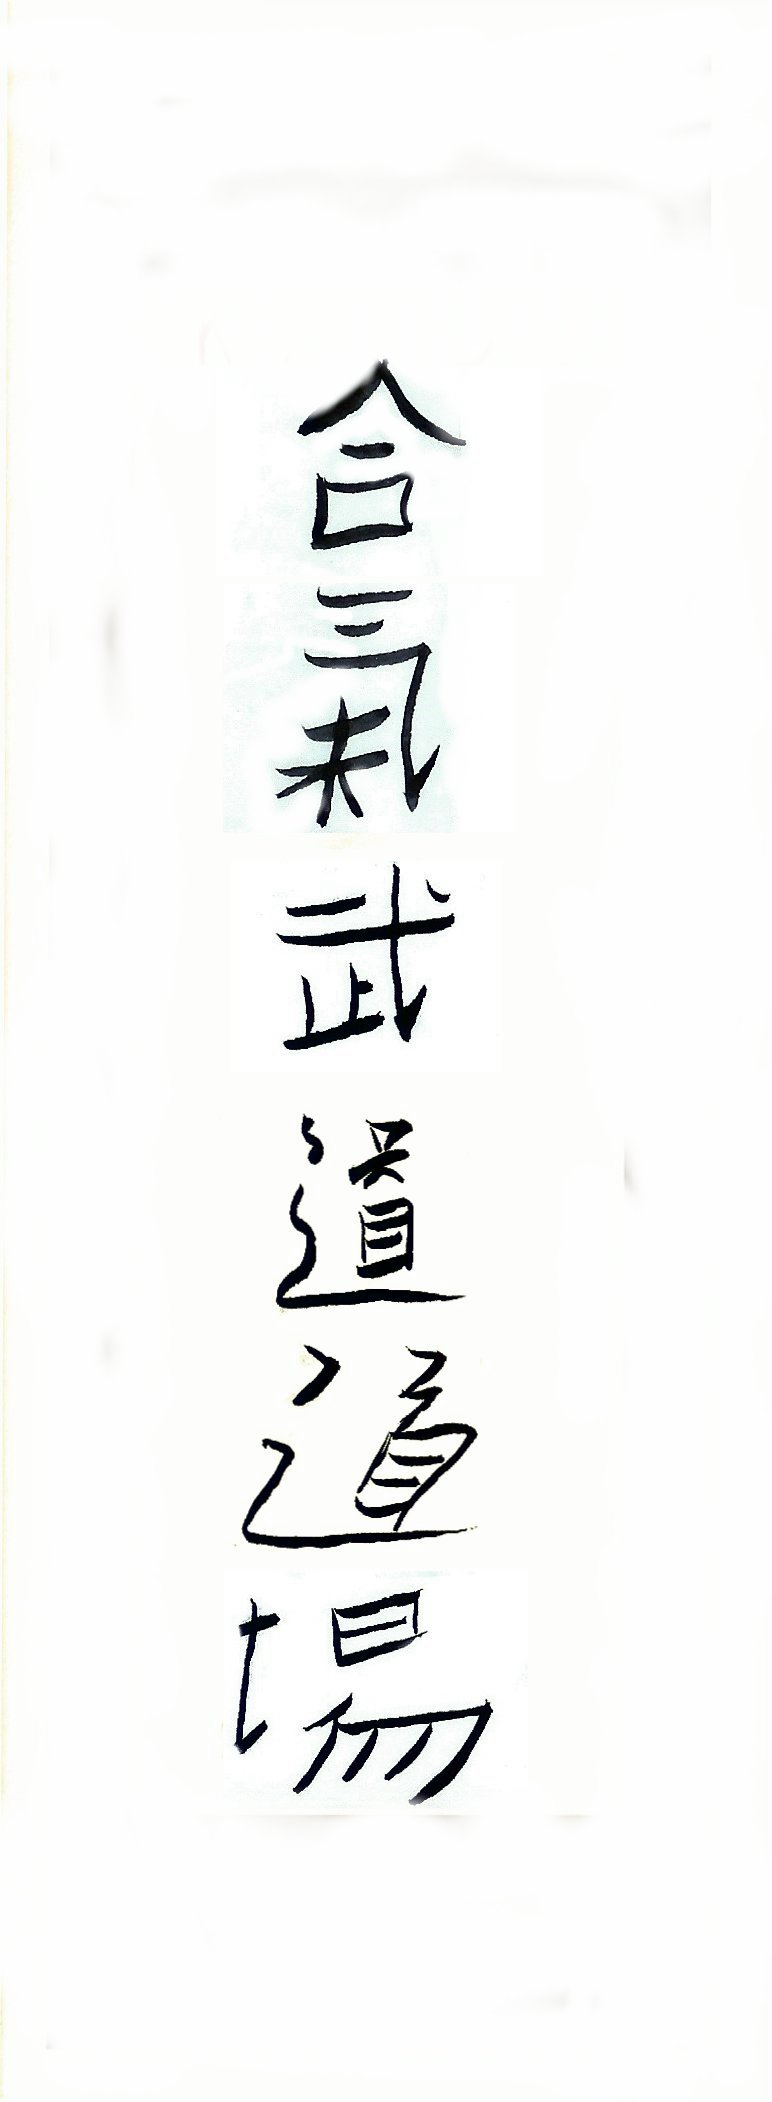 合氣武道道場